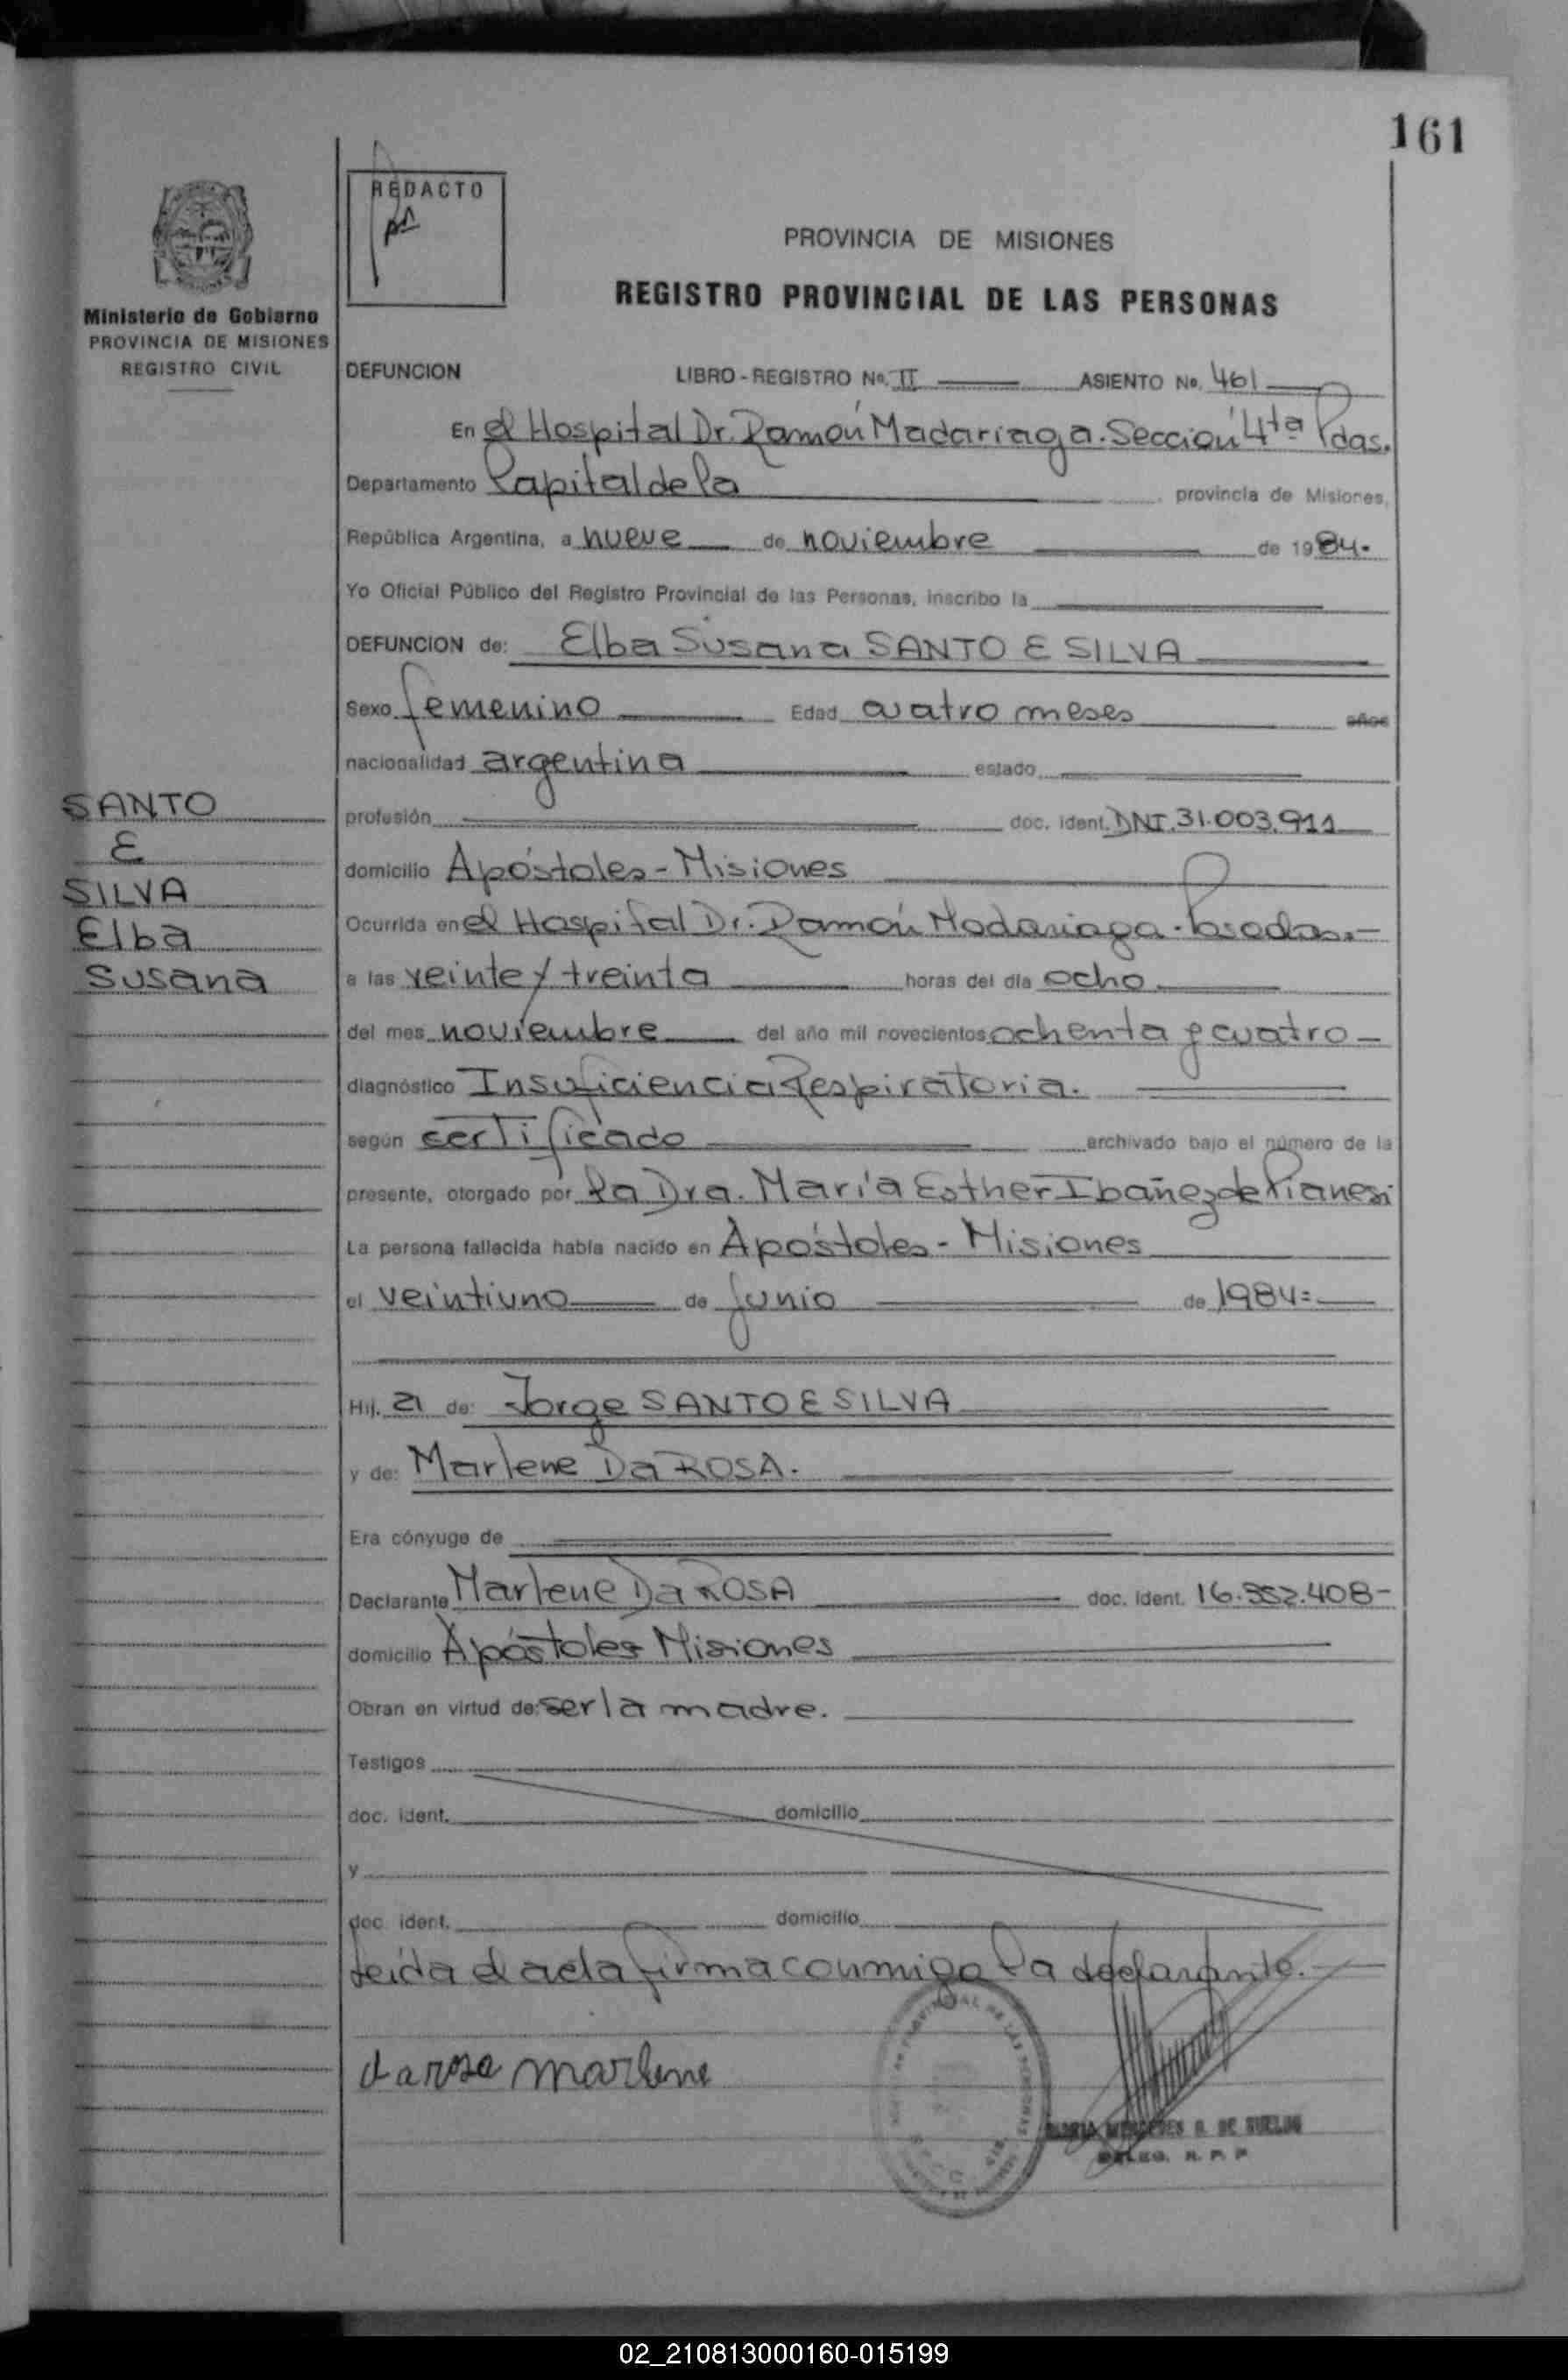 161
REDACTO
PROVINCIA DE MISIONES
REGISTRO PROVINCIAL DE LAS PERSONAS
Ministerio de Gobierno
PROVINCIA DE MISIONES
REGISTRO CIVIL
DEFUNCION LIBRO - REGISTRO No. II ASIENTO No. 461
En el Hospital Dr. Ramón Madariaga. Sección 4ta Pdas.
Departamento Capital de la provincia de Misiones,
República Argentina, a nueve de noviembre de 1984.
Yo Oficial Público del Registro Provincial de las Personas, inscribo la
DEFUNCION de: Elba Susana SANTO E SILVA
Sexo femenino Edad cuatro meses años
nacionalidad argentina estado
SANTO
E
SILVA
Elba
Susana
profesión doc. ident. DNI. 31.003.911
domicilio Apóstoles - Misiones
Ocurrida en el Hospital Dr. Ramón Madariaga - Posadas.-
a las veinte y treinta horas del día ocho
del mes noviembre del año mil novecientos ochenta y cuatro -
diagnóstico Insuficiencia Respiratoria.
según certificado archivado bajo el número de la
presente, otorgado por la Dra. María Esther Ibañez de Pianesi
La persona fallecida había nacido en Apóstoles - Misiones
el veintiuno de junio de 1984=
Hij. a de: Jorge SANTO E SILVA
y de: Marlene Da ROSA.
Era cónyuge de
Declarante Marlene Da ROSA doc. ident. 16.352.408-
domicilio Apóstoles Misiones
Obran en virtud de: ser la madre.
Testigos
doc. ident. domicilio
y
doc. ident. domicilio
Leída el acta firma conmigo la declarante.
da rosa marlene
DELEG. R. P. P
02_210813000160-015199